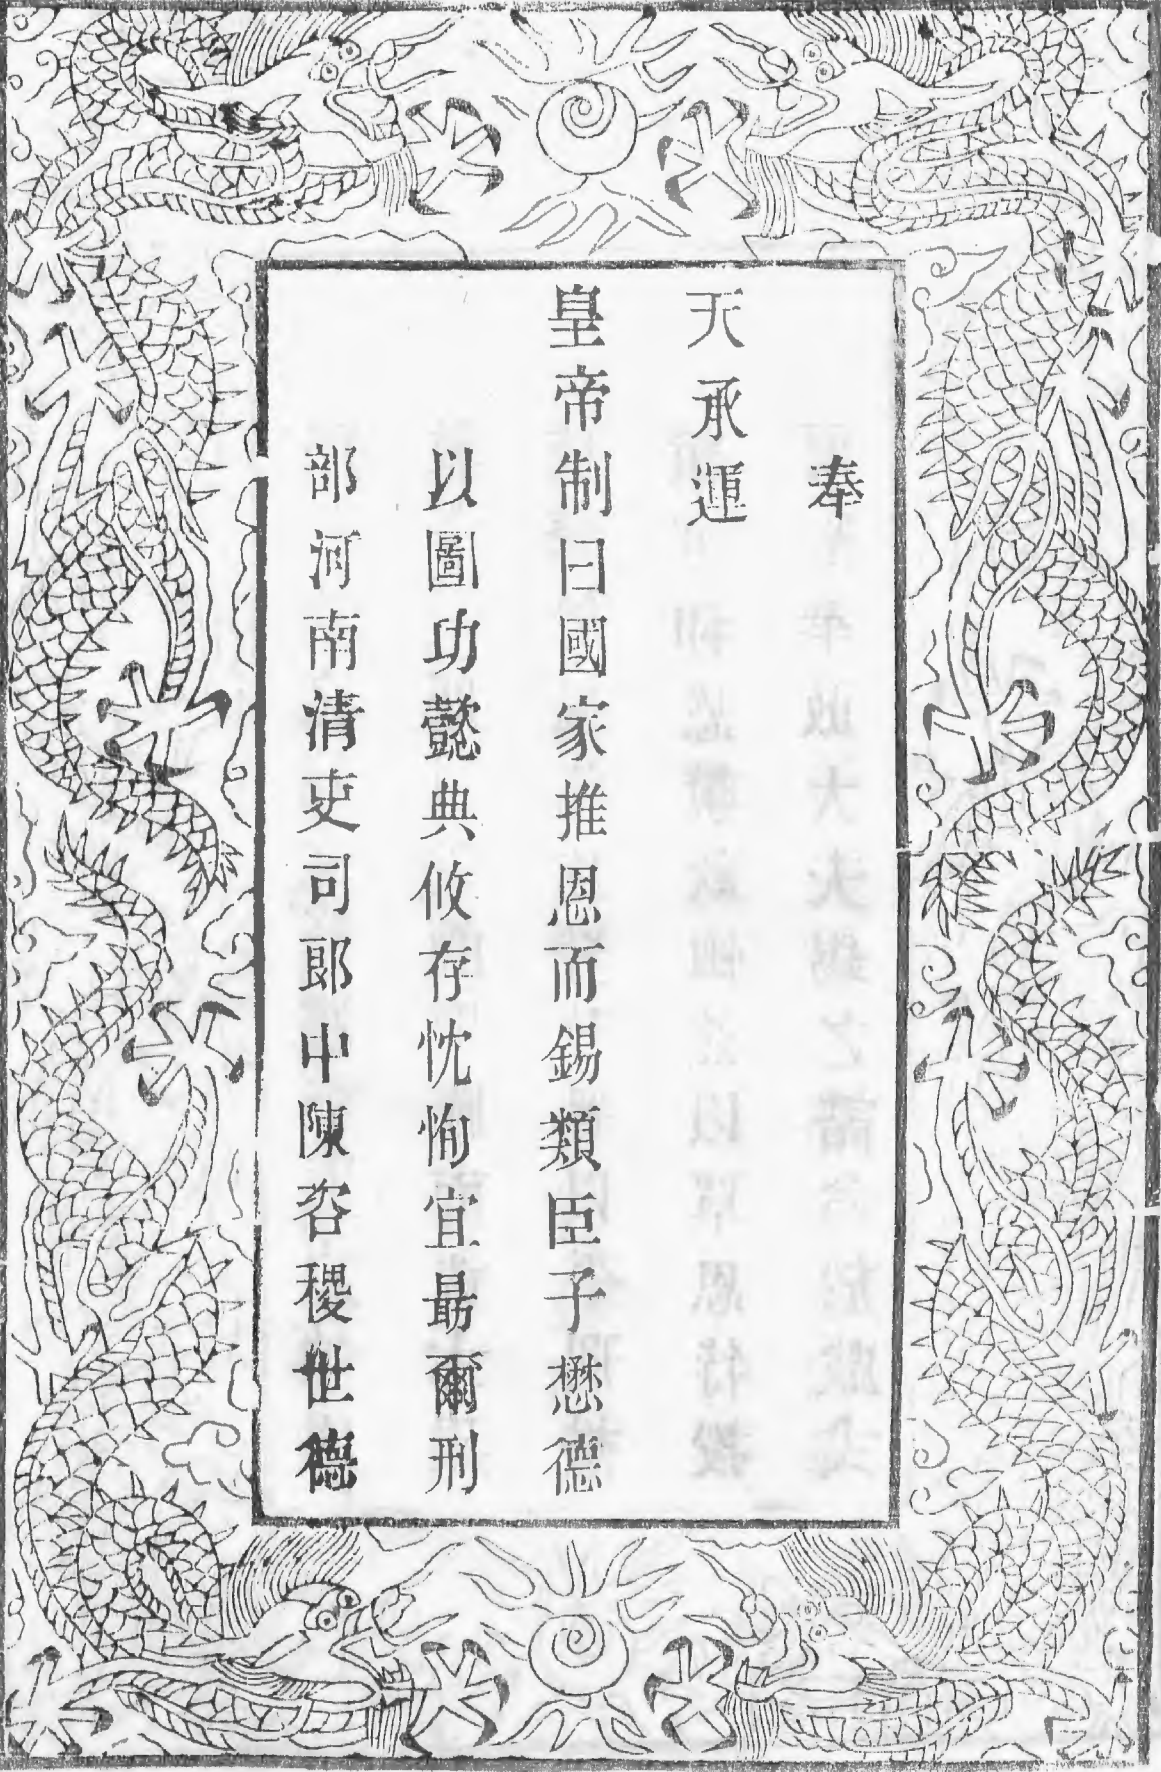 奉
天承運
皇帝制曰國家推恩而錫類臣子懋德
以圖功懿典攸存忱恂宜勗爾刑
部河南清吏司郎中陳容稷世德